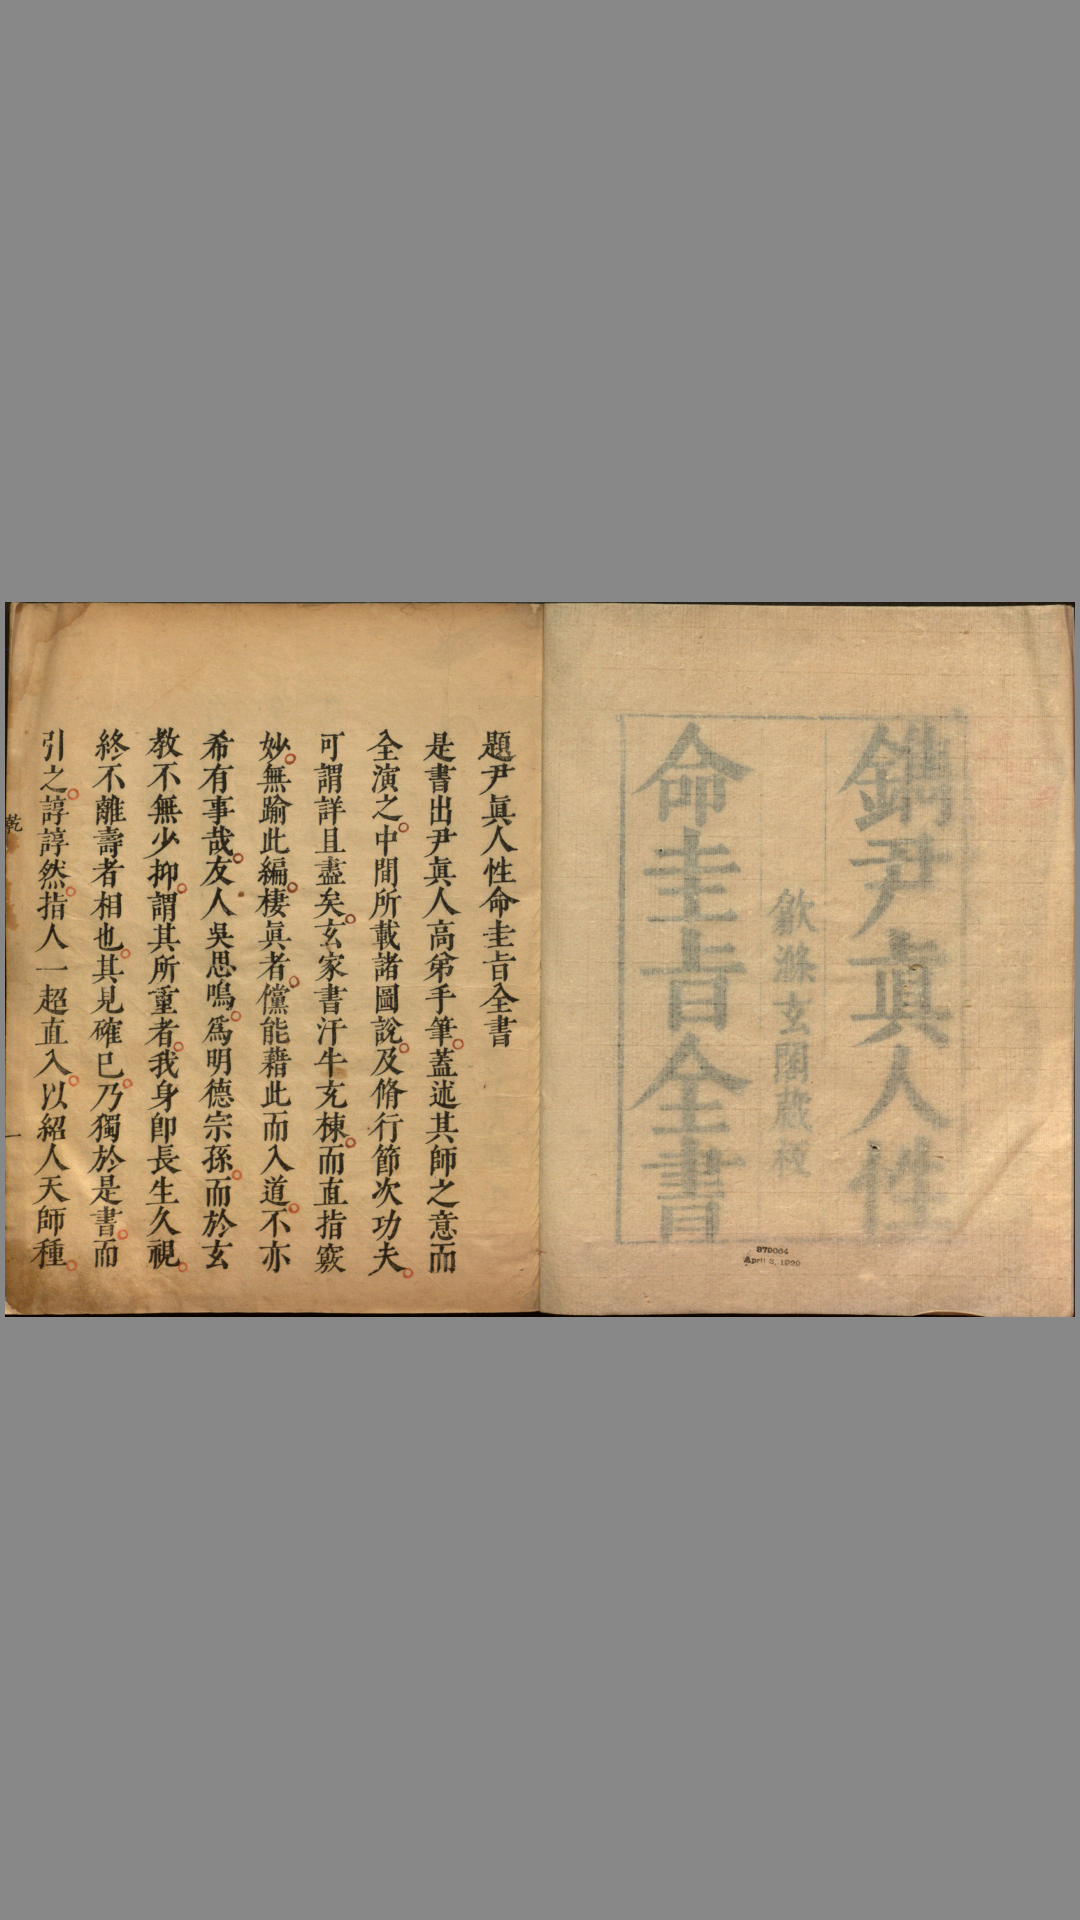 鐫尹眞人性
歙滌玄閣藏板
命圭旨全書
870064
April 3, 1920
題尹眞人性命圭旨全書
是書出尹眞人高弟手筆蓋述其師之意而
全演之中間所載諸圖說及脩行節次功夫
可謂詳且盡矣玄家書汗牛充棟而直指竅
妙無踰此編棲眞者儻能藉此而入道不亦
希有事哉友人吳思鳴爲明德宗孫而於玄
教不無少抑謂其所重者我身卽長生久視
終不離壽者相也其見確已乃獨於是書而
引之諄諄然指人一超直入以紹人天師種
乾
一